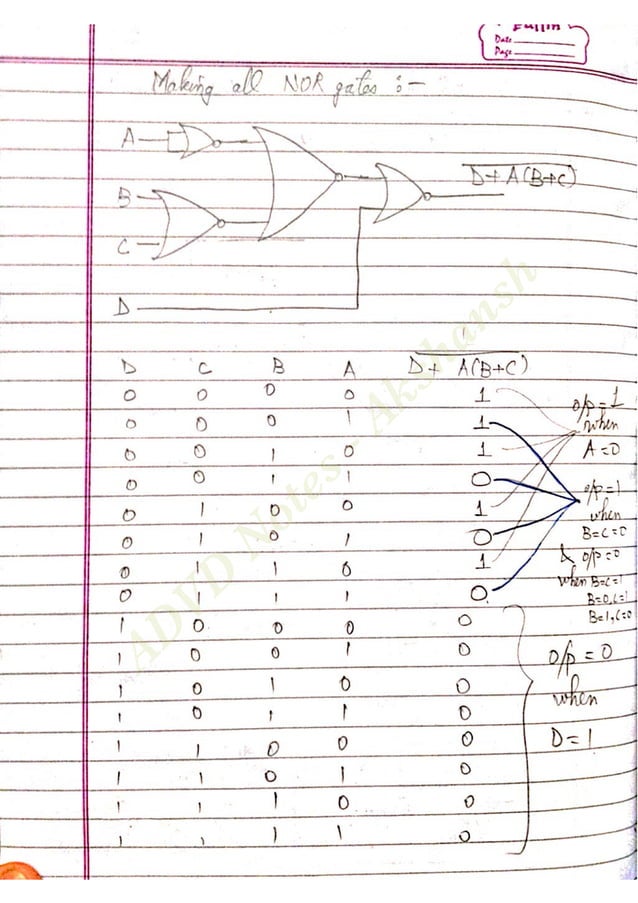 Pallin
Date
Page
Making all NOR gates :-
A
B
C
D
D+A(B+C)
D C B A D+ A(B+C)
0 0 0 0 1
0 0 0 1 1
0 0 1 0 1
0 0 1 1 0
0 1 0 0 1
0 1 0 1 0
0 1 1 0 1
0 1 1 1 0
1 0 0 0 0
1 0 0 1 0
1 0 1 0 0
1 0 1 1 0
1 1 0 0 0
1 1 0 1 0
1 1 1 0 0
1 1 1 1 0
o/p=1
when
A=0
o/p=1
when
B=C=0
& o/p=0
when B=C=1
B=0,C=1
B=1,C=0
o/p=0
when
D=1
ADVD Notes - Akshansh